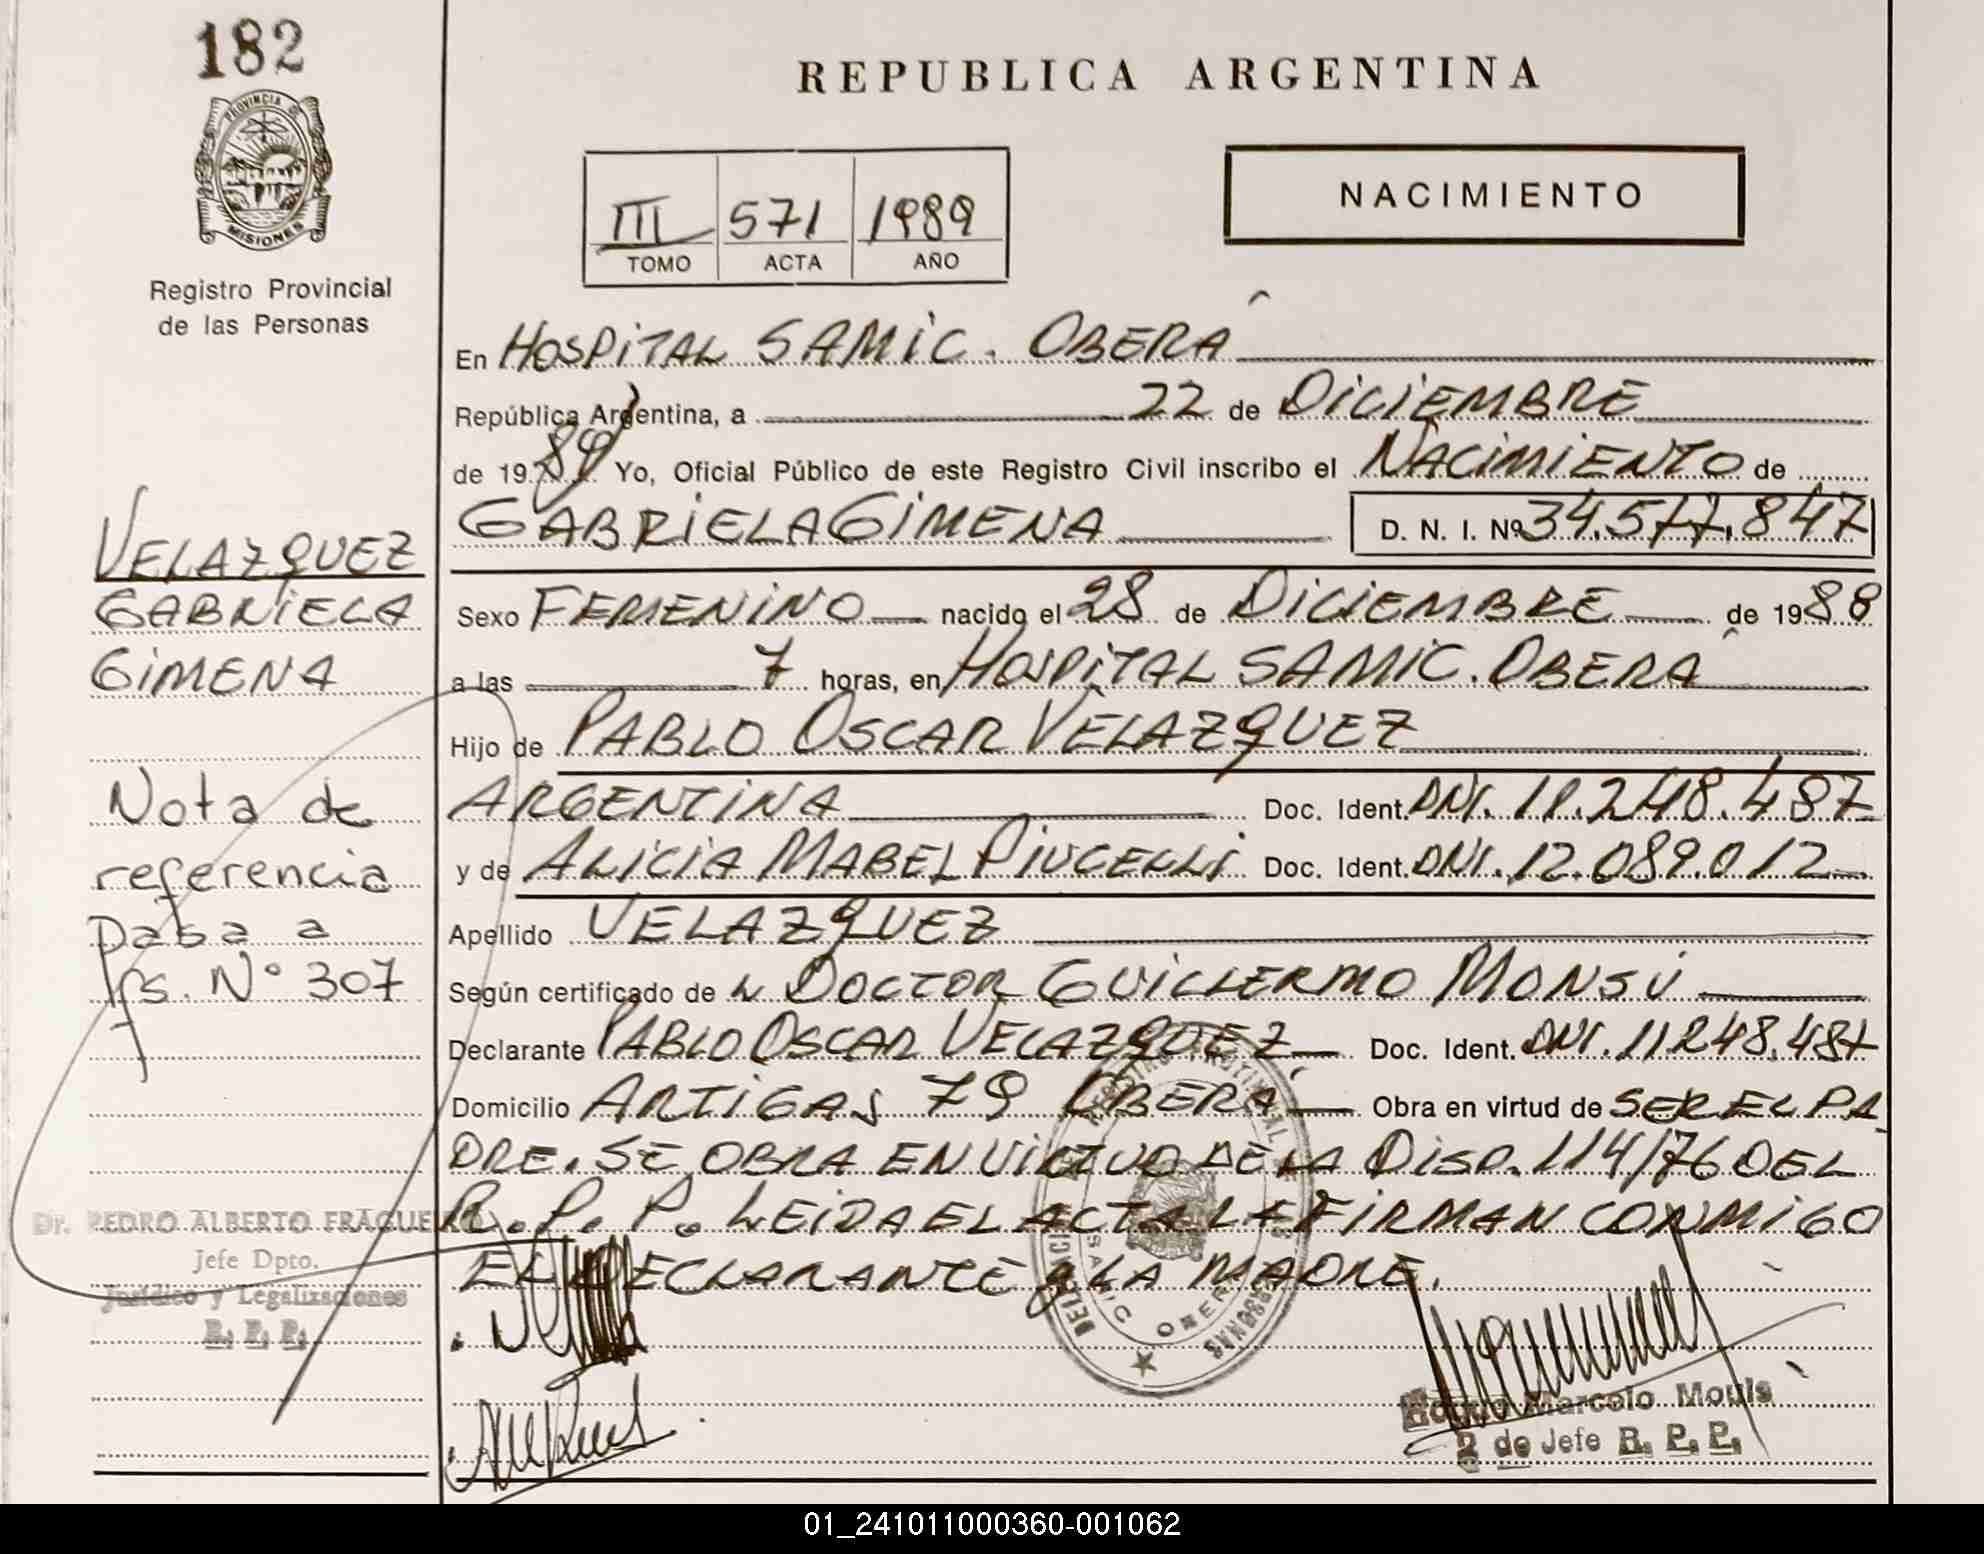 182
PROVINCIA DE
MISIONES
Registro Provincial
de las Personas
REPUBLICA ARGENTINA
III 571 1989
TOMO ACTA AÑO
NACIMIENTO
En HOSPITAL SAMIC. OBERÁ
República Argentina, a 22 de DICIEMBRE
de 19 89 Yo, Oficial Público de este Registro Civil inscribo el NACIMIENTO de
GABRIELA GIMENA D. N. I. Nº 34.577.847
Sexo FEMENINO nacido el 28 de DICIEMBRE de 19 88
a las 7 horas, en HOSPITAL SAMIC. OBERÁ
Hijo de PABLO OSCAR VELAZQUEZ
ARGENTINA Doc. Ident. DNI. 11.248.487
y de ALICIA MABEL PIUCELLI Doc. Ident. DNI. 12.089.012
Apellido VELAZQUEZ
Según certificado de DOCTOR GUILLERMO MONSÚ
Declarante PABLO OSCAR VELAZQUEZ Doc. Ident. DNI. 11.248.487
Domicilio ARTIGAS 79 OBERÁ Obra en virtud de SER EL PA
DRE. SE OBRA EN VIRTUD DE LA DISP. 114/76 DEL
R. P. P. LEIDA EL ACTA LA FIRMAN CONMIGO
EL DECLARANTE y LA MADRE.
VELAZQUEZ
GABRIELA
GIMENA
Nota de
referencia
pasa a
fs. N° 307
Dr. PEDRO ALBERTO FRAGUE
Jefe Dpto.
Jurídico y Legalizaciones
R. P. P.
SAMIC OBERA
Marcelo Mouls
2 de Jefe R. P. P.
01_241011000360-001062